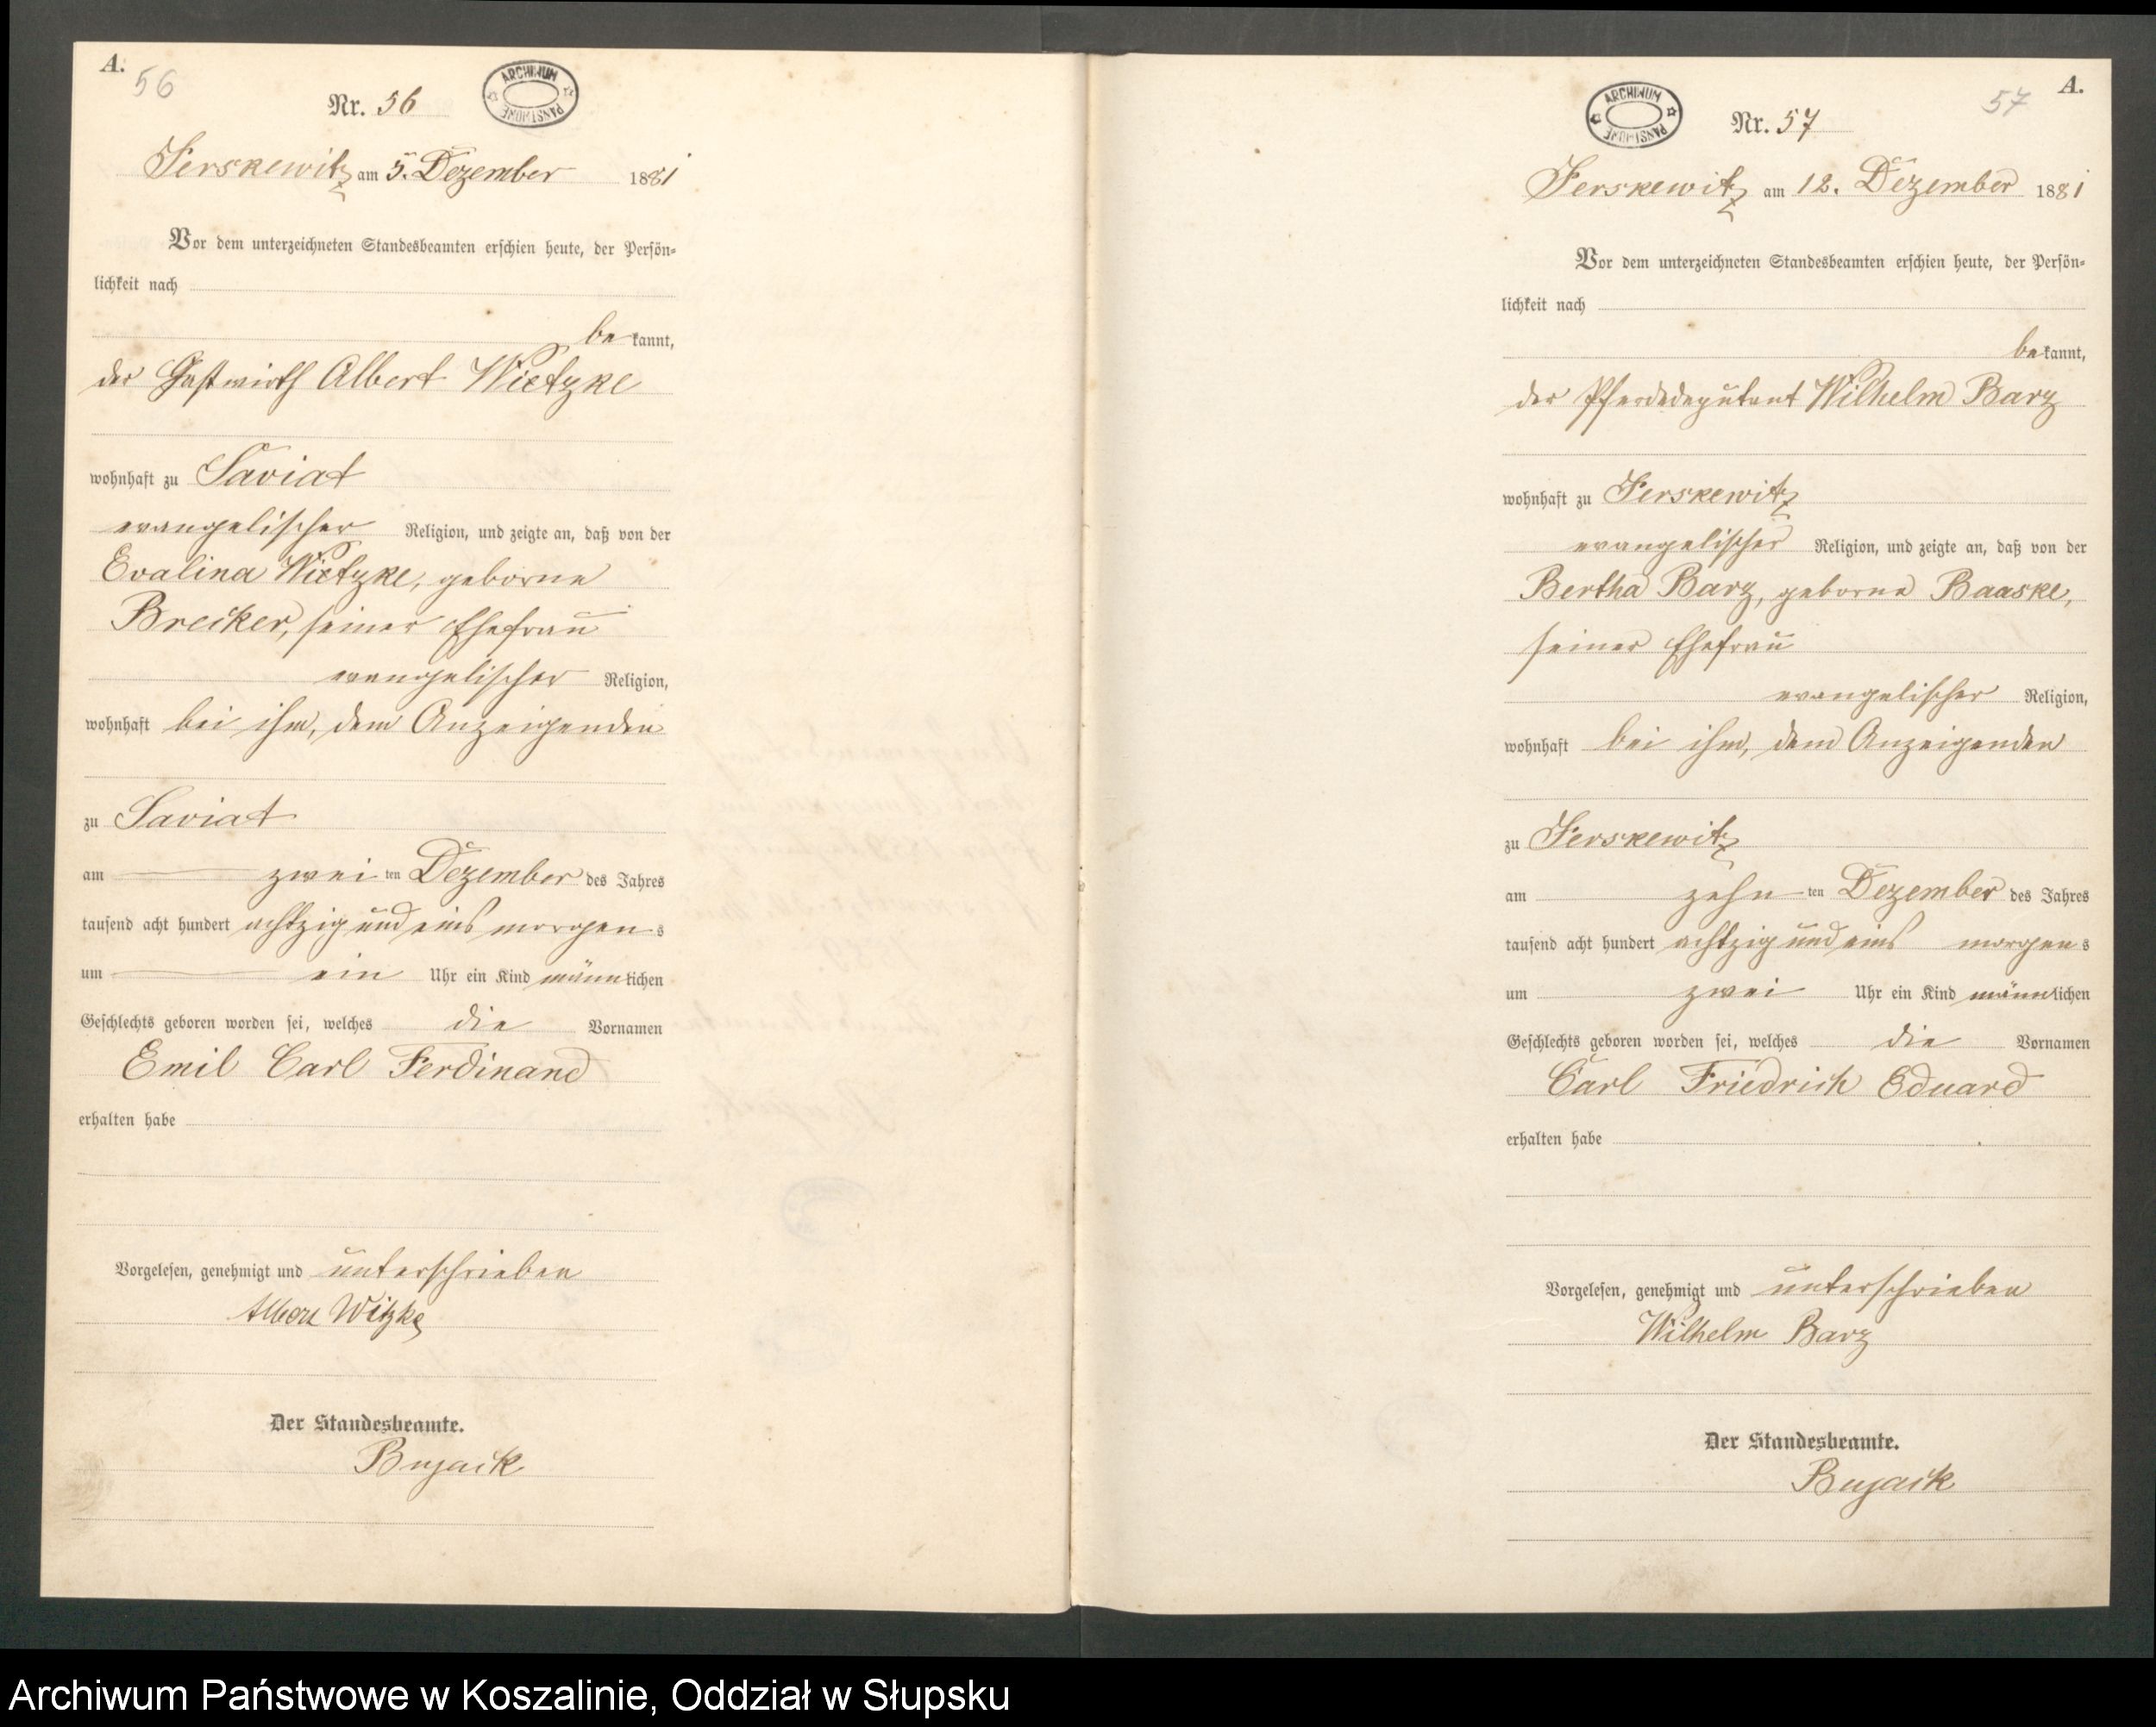 A.
56
Nr. 56
ARCHIWUM PAŃSTWOWE
Jerskewitz am 5. Dezember 1881
Vor dem unterzeichneten Standesbeamten erschien heute, der Persön-
lichkeit nach
bekannt,
der Gastwirth Albert Wietzke
wohnhaft zu Saviat
evangelischer Religion, und zeigte an, daß von der
Evalina Wietzke, geborne
Brecker, seiner Ehefrau
evangelischer Religion,
wohnhaft bei ihm, dem Anzeigenden
zu Saviat
am zweiten Dezember des Jahres
tausend acht hundert achtzig und eins morgens
um ein Uhr ein Kind männlichen
Geschlechts geboren worden sei, welches die Vornamen
Emil Carl Ferdinand
erhalten habe
Vorgelesen, genehmigt und unterschrieben
Albert Witzke
Der Standesbeamte.
Bujack
A.
57
Nr. 57
ARCHIWUM PAŃSTWOWE
Jerskewitz am 12. Dezember 1881
Vor dem unterzeichneten Standesbeamten erschien heute, der Persön-
lichkeit nach
bekannt,
der Pferdedeputant Wilhelm Barz
wohnhaft zu Jerskewitz
evangelischer Religion, und zeigte an, daß von der
Bertha Barz, geborne Baaske,
seiner Ehefrau
evangelischer Religion,
wohnhaft bei ihm, dem Anzeigenden
zu Jerskewitz
am zehnten Dezember des Jahres
tausend acht hundert achtzig und eins morgens
um zwei Uhr ein Kind männlichen
Geschlechts geboren worden sei, welches die Vornamen
Carl Friedrich Eduard
erhalten habe
Vorgelesen, genehmigt und unterschrieben
Wilhelm Barz
Der Standesbeamte.
Bujack
Archiwum Państwowe w Koszalinie, Oddział w Słupsku